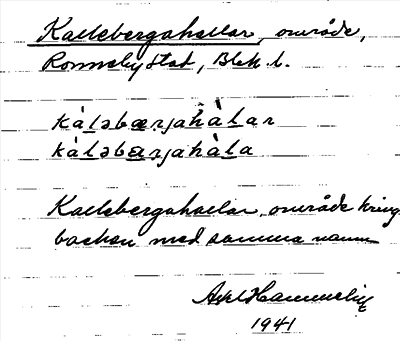 Kallebergahallar, område,
Ronneby stad, Blek. l.
kàləbærjahàlar
kàləbærjahàla
Kallebergahallar, område kring
backen med samma namn
Axel Hammelin
1941